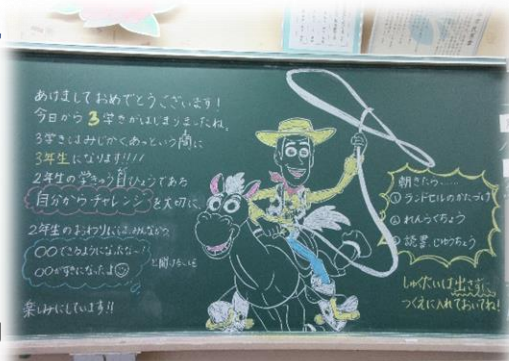 あけましておめでとうございます!
今日から3学きがはじまりましたね。
3学きはみじかく、あっという間に
3年生になります!!!
2年生の学きゅう目ひょうである
自分からチャレンジを大切に、
2年生のおわりには、みんなから
〇〇できるようになったな〜!
〇〇がすきになったよ
と聞けることを
楽しみにしています!!
朝きたら……
①ランドセルのかたづけ
②れんらくちょう
③読書、じゆうちょう
しゅくだいは出さずに、
つくえに入れておいてね!